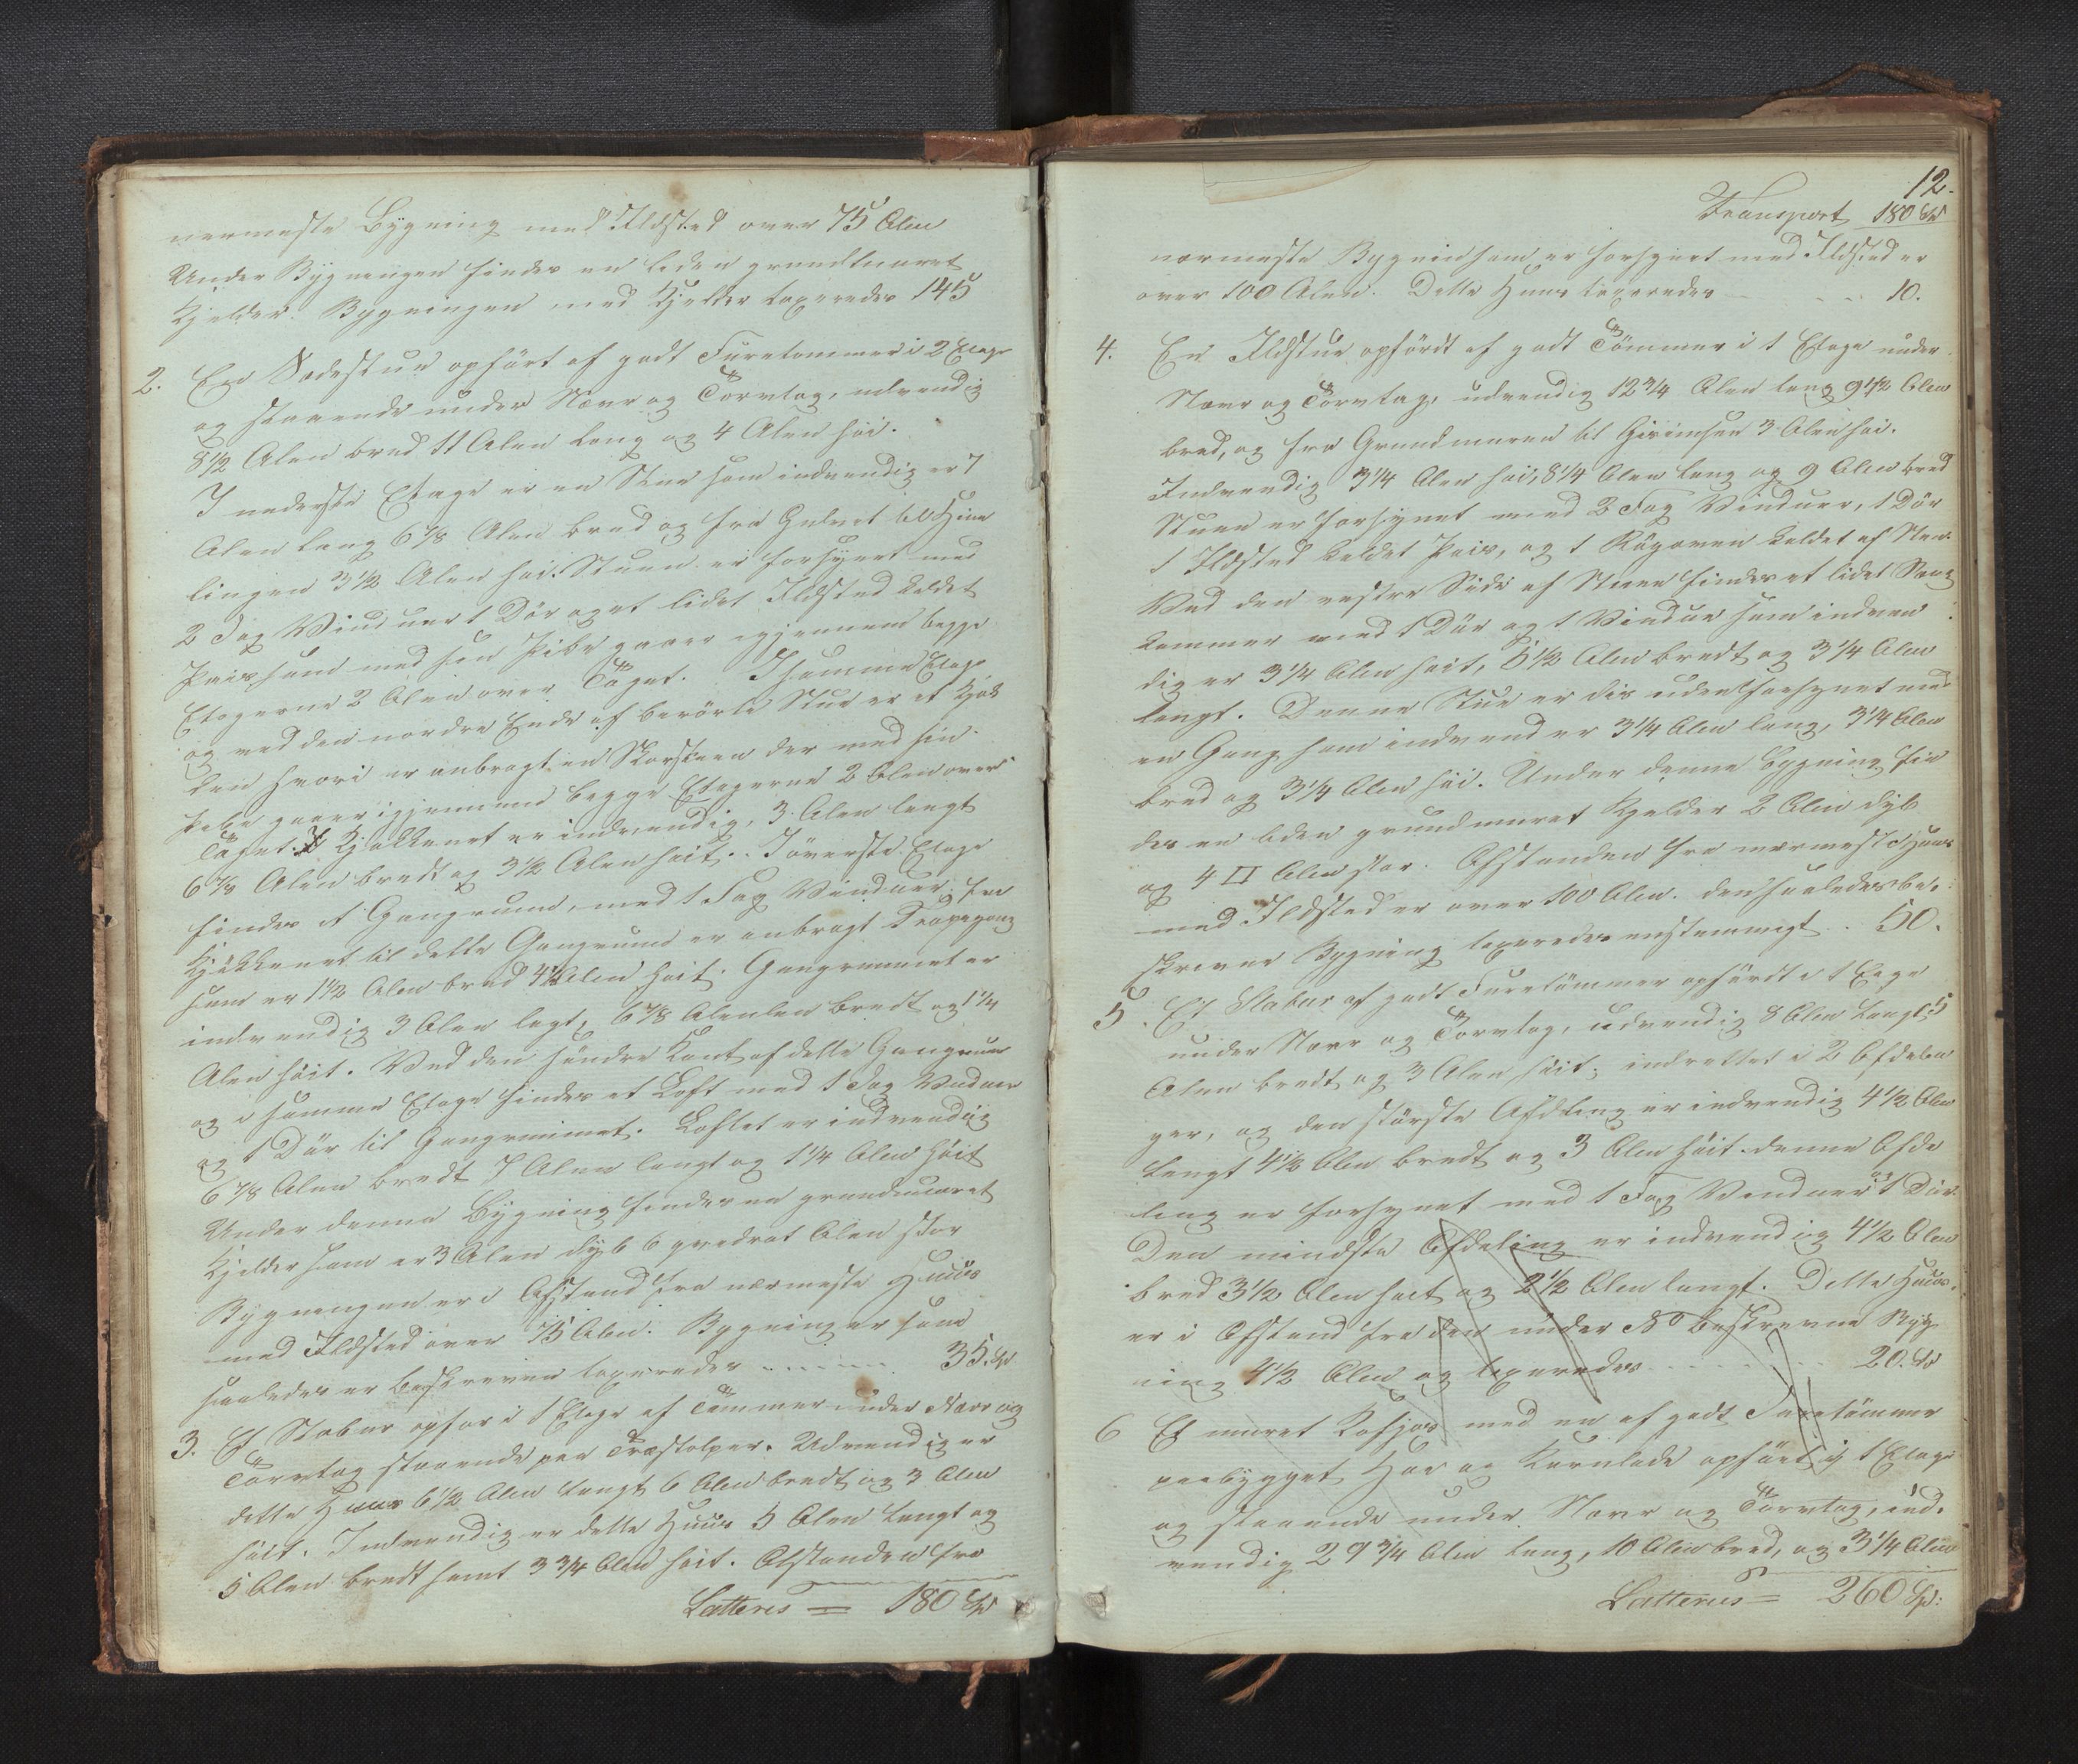 nermeste Bygning med Ildsted over 75 Alen
Under Bygningen findes en liden grundmuret
Kjelder. Bygningen med Kjelder taxeredes 145
2. En Sødestue opført af godt Furetømmer i 2 Etage
og staaende under Næver og Torvtag, udvendig
8 1/2 Alen bred 11 Alen lang og 4 Alen høi.
I nederste Etage er en Stue som indvendig er 7
Alen lang 6 7/8 Alen bred og fra Gulvet til Him
lingen 3 1/2 Alen høi. Stuen er forsynet med
2 Fag Vinduer 1 Dør og et lidet Ildsted kaldet
Peis som med sin Pibe gaaer igjennem begge
Etagerne 2 Alen over Taget. I samme Etage
og ved den nordre Ende af berørte Stue er et Kjøk
ken hvori er anbragt en Skorsteen der med sin
Pibe gaaer igjennem begge Etagerne 2 Alen over
Taget. Kjøkkenet er indvendig, 3 Alen langt
6 7/8 Alen bredt og 3 1/2 Alen høit. I øverste Etage
findes et Gangrum, med 1 Fag Vinduer, fra
Kjøkkenet til dette Gangrum er anbragt Trapegang
som er 1 1/2 Alen bred 4 Alen høit. Gangrummet er
indvendig 3 Alen lagt, 6 7/8 Alenlen bredt og 1 1/4
Alen høit. Ved den søndre Kant af dette Gangrum
og i samme Etage findes et Loft med 1 Fag Vinduer
og 1 Dør til Gangrummet. Loftet er indvendig
6 7/8 Alen bredt 7 Alen langt og 1 1/4 Alen høit
Under denne Bygning findes en grundmuret
Kjelder som er 3 Alen dyb 6 qvedrat Alen stor
Bygningen er i Afstand fra nærmeste Huus
med Ildsted over 75 Alen. Bygningen som
saaledes er beskreven taxeredes 35.
3. Et Stabur opfør i 1 Etage af Tømmer under Næver og
Torvtag staaende paa Træstolper. Udvendig er
dette Huus 6 1/2 Alen langt 6 Alen bredt og 3 Alen
høit. Indvendig er dette Huus 5 Alen langt og
5 Alen bredt samt 3 3/4 Alen høit. Afstanden fra
Latteris = 180
12.
Transport 180
nærmeste Bygnin som er forsynet med Ildsted er
over 100 Alen. Dette Huus taxeredes 10.
4. En Ildstue opfördt af godt Tømmer i 1 Etage under
Næver og Torvtag, udvendig 12 3/4 Alen lang 9 1/2 Alen
bred, og fra Grundmuren til Gesimsen 3 Alen høi.
Indvendig 3 1/4 Alen høi, 8 1/4 Alen lang og 9 Alen bred
Stuen er forsynet med 2 Fag Vinduer, 1 Dör
1 Ildsted kaldet Peis, og 1 Røgoven kaldet af Sten.
Ved den vestre Side af Stuen findes et lidet Seng
kammer med 1 Dör og 1 Vindue som indven
dig er 3 1/4 Alen høit, 5 1/2 Alen bredt og 3 1/4 Alen
langt. Denne Stue er des uden forsynet med
en Gang som indvend er 3 1/4 Alen lang, 3 1/4 Alen
bred og 3 1/4 Alen høi. Under denne Bygning fin
des en liden grundmuret Kjelder 2 Alen dyb
og 4 □ Alen stor. Afstanden fra nærmeste Huus
med Ildsted er over 100 Alen. den saaledes be-
skrevne Bygning taxeredes enstemmigt 50.
5. Et Stabur af godt Furetømmer opfördt i 1 Etage
under Næver og Torvtag, udvendig 8 Alen langt 5
Alen bredt og 3 Alen høit, indrettet i 2 Afdelin
ger, og den største Afdeling er indvendig 4 1/2 Alen
langt 4 1/2 Alen bredt og 3 Alen høit. denne Afde
ling er forsynet med 1 Fag Vinduer og 1 Dør.
Den mindste Afdeling er indvendig 4 1/2 Alen
bred 3 1/2 Alen høit og 2 1/2 Alen langt. Dette Huus
er i Afstand fra den under No beskrevne Byg
ning 4 1/2 Alen og taxeredes 20.
6 Et muret Kofjøs med en af godt Furetømmer
paabygget Høe og Kornlade opført i 1 Etage
og staaende under Næver og Torvtag, ind-
vendig 29 3/4 Alen lang, 10 Alen bred, og 3 1/4 Alen
Latterus = 260